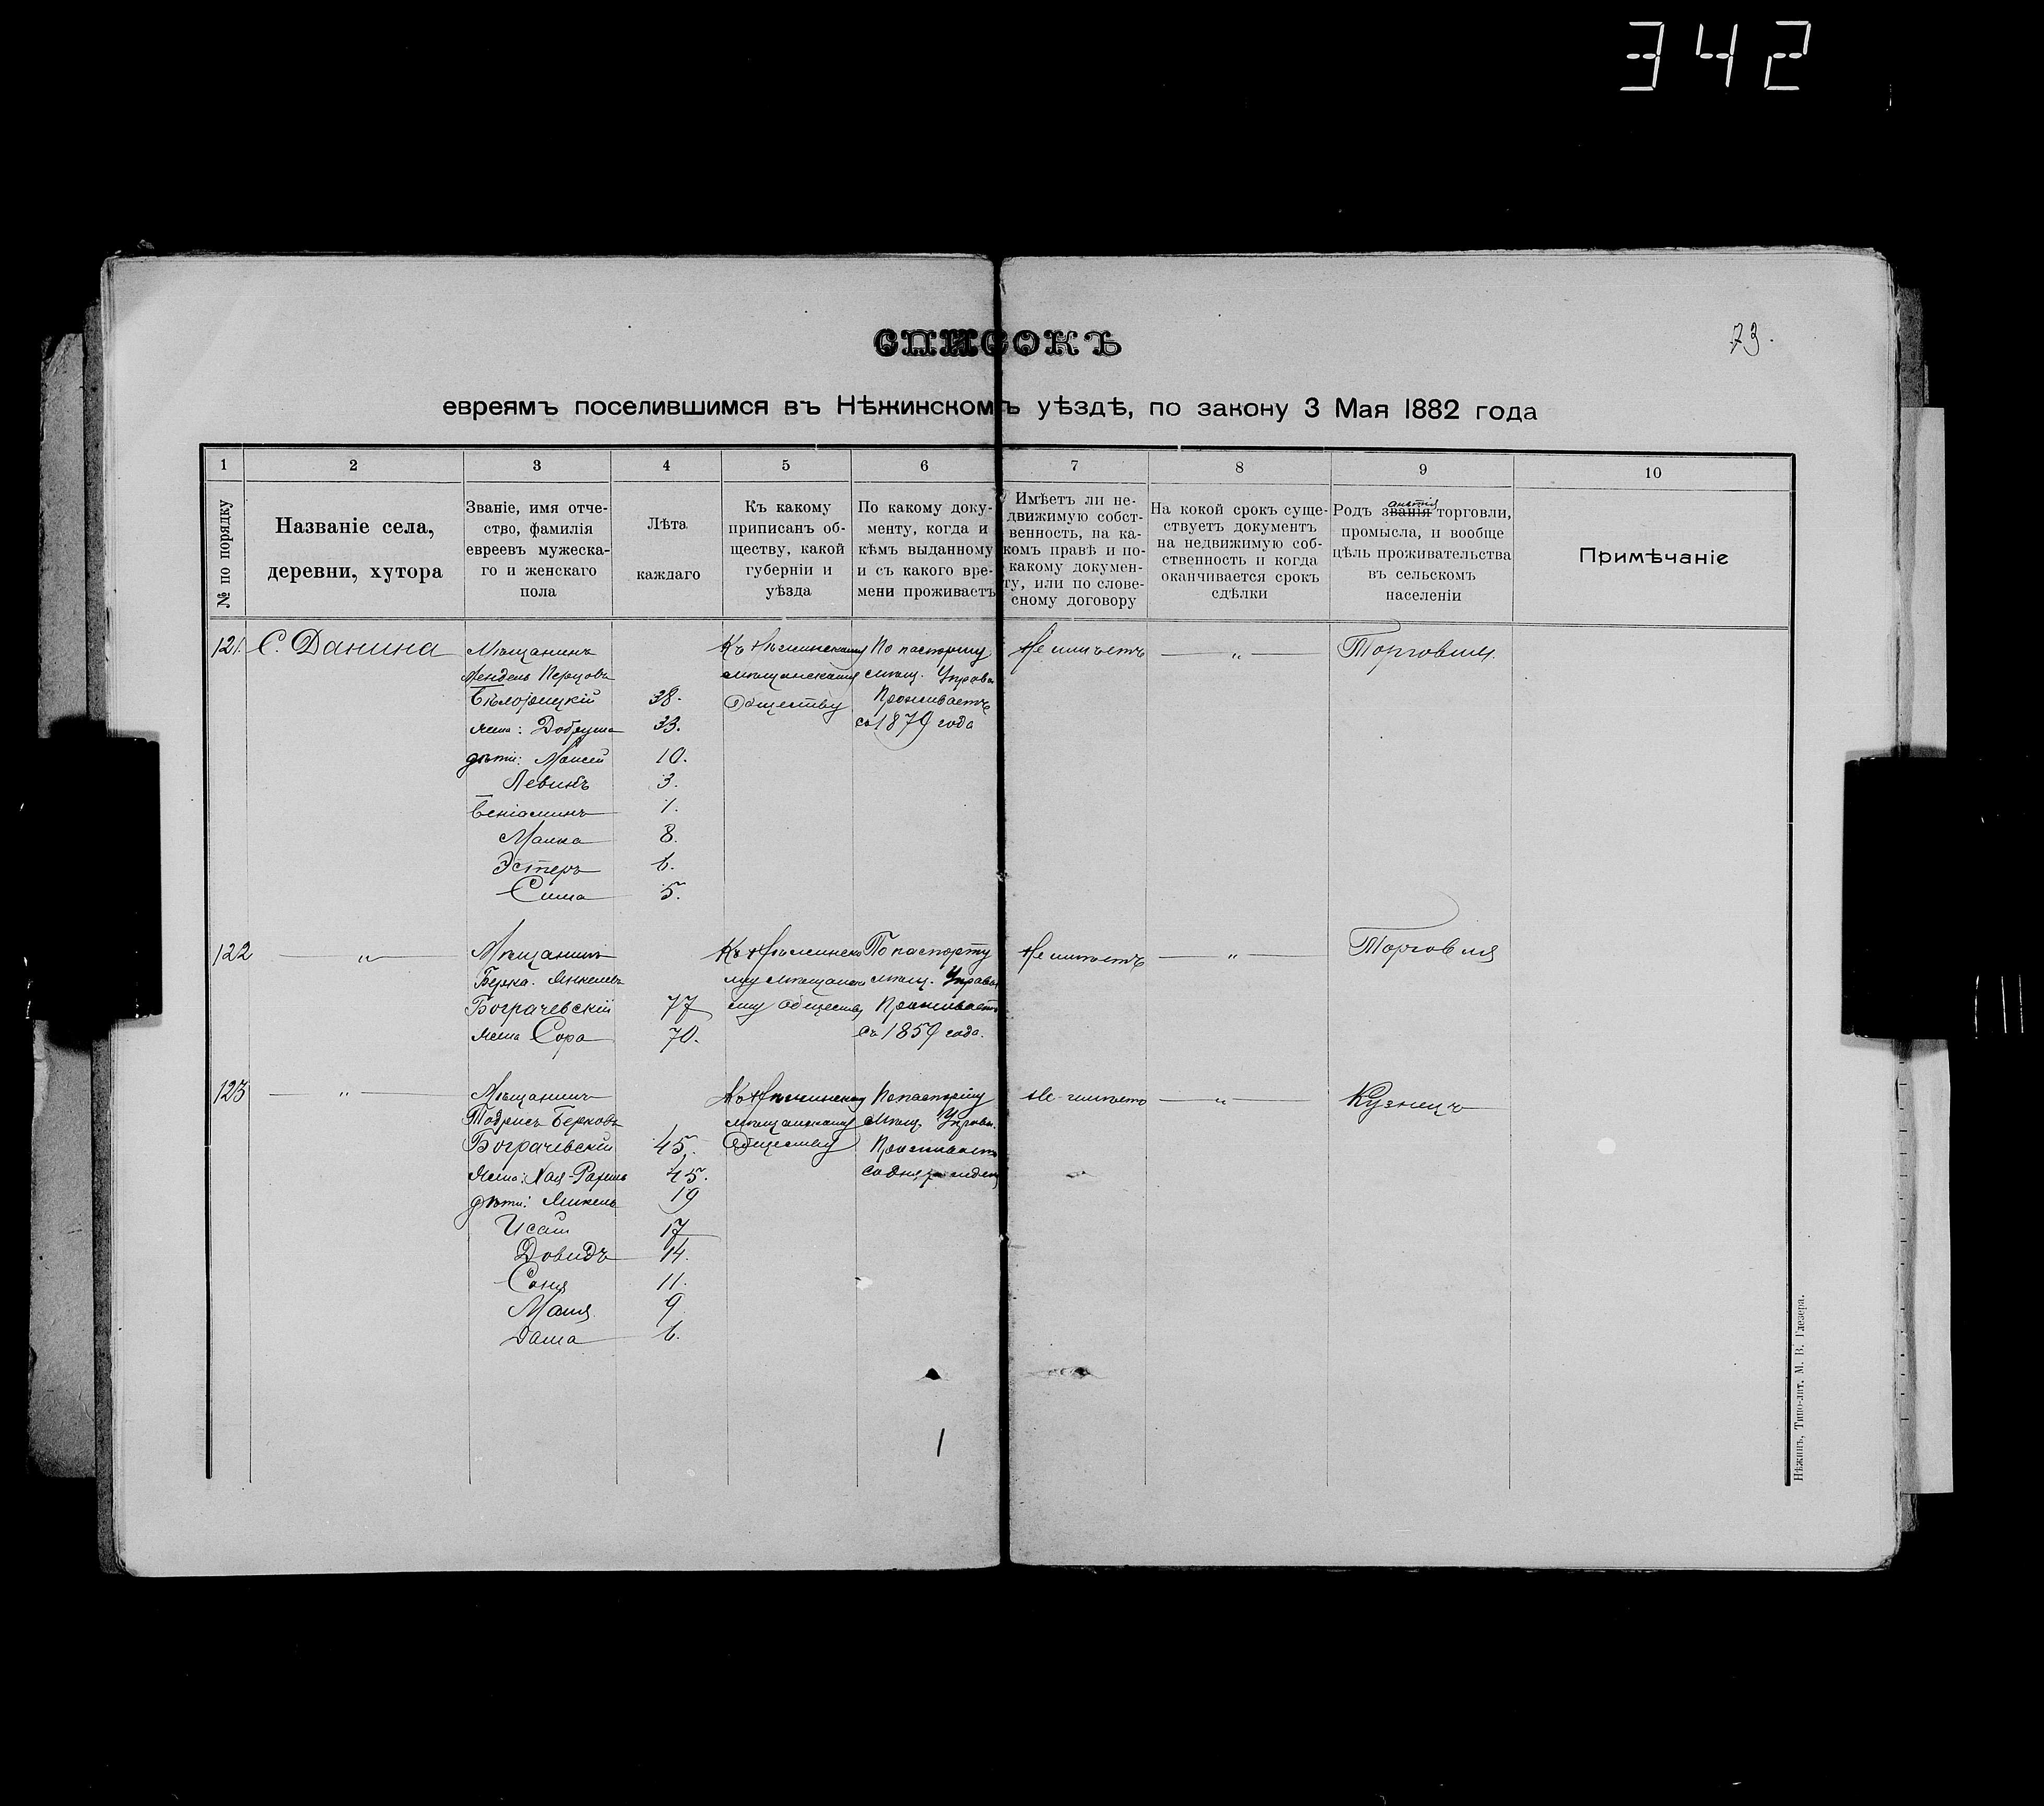 342
73.
СПИСОКЪ
евреямъ поселившимся въ Нѣжинскомъ уѣздѣ, по закону 3 Мая 1882 года
1 2 3 4 5 6 7 8 9 10
№ по порядку
Названіе села,
деревни, хутора
Званіе, имя отче-
ство, фамилія
евреевъ мужеска-
го и женскаго
пола
Лѣта
каждаго
Къ какому
приписанъ об-
ществу, какой
губерніи и
уѣзда
По какому доку-
менту, когда и
кѣмъ выданному
и съ какого вре-
мени проживаетъ
Имѣетъ ли не-
движимую собст-
венность, на ка-
комъ правѣ и по-
какому докумен-
ту, или по слове-
сному договору
На кокой срокъ суще-
ствуетъ документъ
на недвижимую соб-
ственность и когда
оканчивается срокъ
сдѣлки
Родъ званія торговли,
промысла, и вообще
цѣль проживательства
въ сельскомъ
населеніи
Примѣчаніе
121. С. Данина Мѣщанинъ Къ Нѣжинскому По паспорту Не имѣетъ — „ — Торговля.
Мендель Перцовъ мѣщанскому мѣщ. Управы
Бѣлоѳицкій 38. Обществу Проживаетъ
жена: Добруша 33. съ 1879 года
дѣти: Моисей 10.
Левинъ 3.
Веніаминъ 1.
Малка 8.
Эстеръ 6.
Сима 5.
122 — „ — Мѣщанинъ Къ Нѣжинско По паспорту Не имѣетъ — „ — Торговля
Берка Янкелевъ му мѣщанск мѣщ. Управы
Бограчевскій 77 ому обществу Проживаетъ
жена Сора 70. съ 1859 года.
123 — „ — Мѣщанинъ Къ Нѣжинскому По паспорту Не имѣетъ — „ — Кузнецъ
Тодрисъ Берковъ мѣщанскому мѣщ. Управы.
Бограчевскій 45. Обществу Проживаетъ
жена: Хая-Рахиль 45. со дня рожденія
дѣти: Янкель 19
Исай 17
Довидъ 14.
Соня 11.
Маня 9
Даша 6.
Нѣжинъ, Типо-лит. М. В. Глезера.